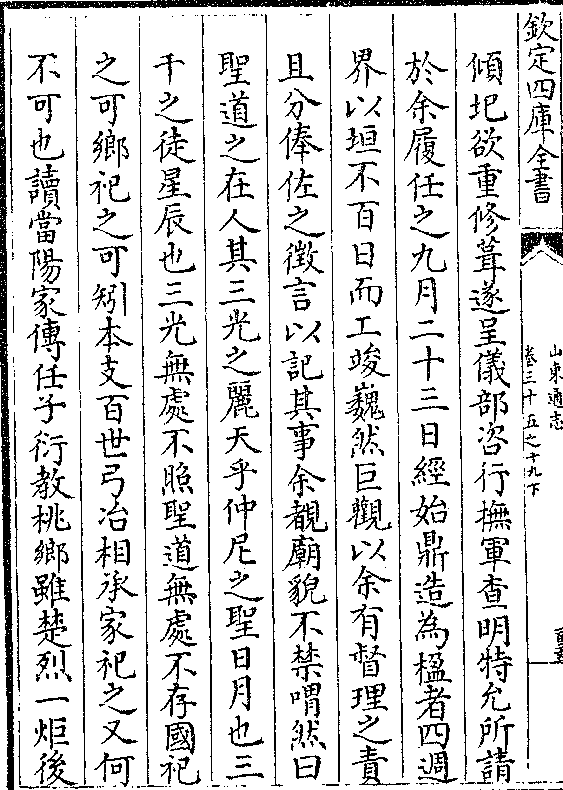 欽定四庫全書
山東通志
卷三十五之十九下
傾圮欲重修葺遂呈儀部咨行撫軍查明特允所請
於余履任之九月二十三日經始鼎造為楹者四週
界以垣不百日而工竣巍然巨觀以余有督理之責
且分俸佐之徵言以記其事余覩廟貌不禁喟然曰
聖道之在人其三光之麗天乎仲尼之聖日月也三
千之徒星辰也三光無處不照聖道無處不存國祀
之可鄉祀之可矧本支百世弓冶相承家祀之又何
不可也讀當陽家傳任子衍教桃鄉雖楚烈一炬後